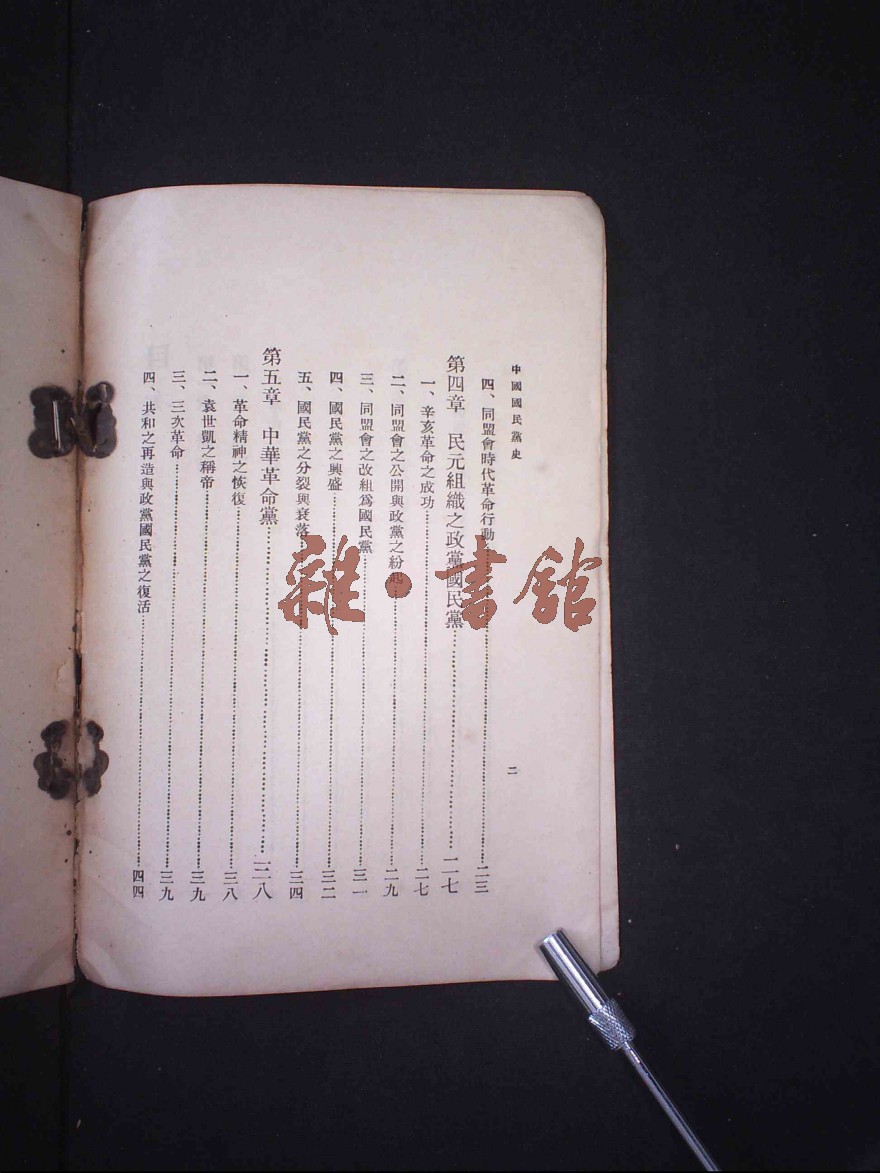 中國國民黨史
二
四、同盟會時代革命行動……二三
第四章　民元組織之政黨國民黨……二七
一、辛亥革命之成功……二七
二、同盟會之公開與政黨之紛起……二九
三、同盟會之改組爲國民黨……三一
四、國民黨之興盛……三二
五、國民黨之分裂與衰落……三四
第五章　中華革命黨……三八
一、革命精神之恢復……三八
二、袁世凱之稱帝……三九
三、三次革命……三九
四、共和之再造與政黨國民黨之復活……四四
雜·書館